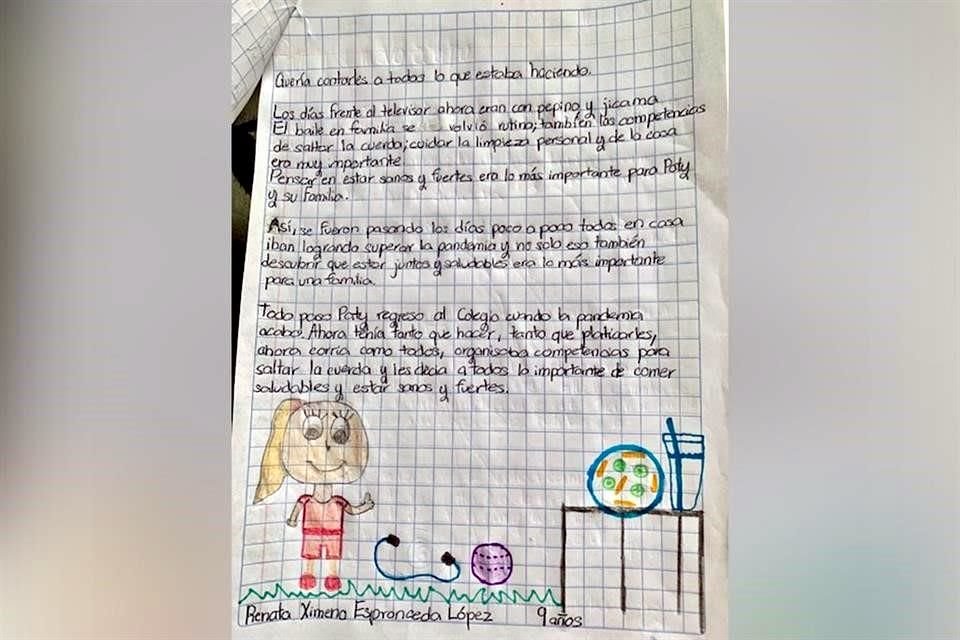 Quería contarles a todos lo que estaba haciendo.
Los días frente al televisor ahora eran con pepino y jicama
El baile en familia se volvió rutina; también las competencias
de saltar la cuerda; cuidar la limpieza personal y de la casa
era muy mportante.
Pensar en estar sanos y fuertes era lo más importante para Paty
y su familia.
Así, se fueron pasando los días poco a poco todos en casa
iban logrando superar la pandemia y no solo eso también
descubrir que estar juntos y saludables era lo más importante
para una familia.
Todo paso Paty regreso al Colegio cundo la pandemia
acabo. Ahora tenía tanto que hacer, tanto que platicarles,
ahora corría como todos, organisaba competencias para
saltar la cuerda y les decía a todos lo importante de comer
saludables y estar sanos y fuertes.
Renata Ximena Espronceda López 9 años